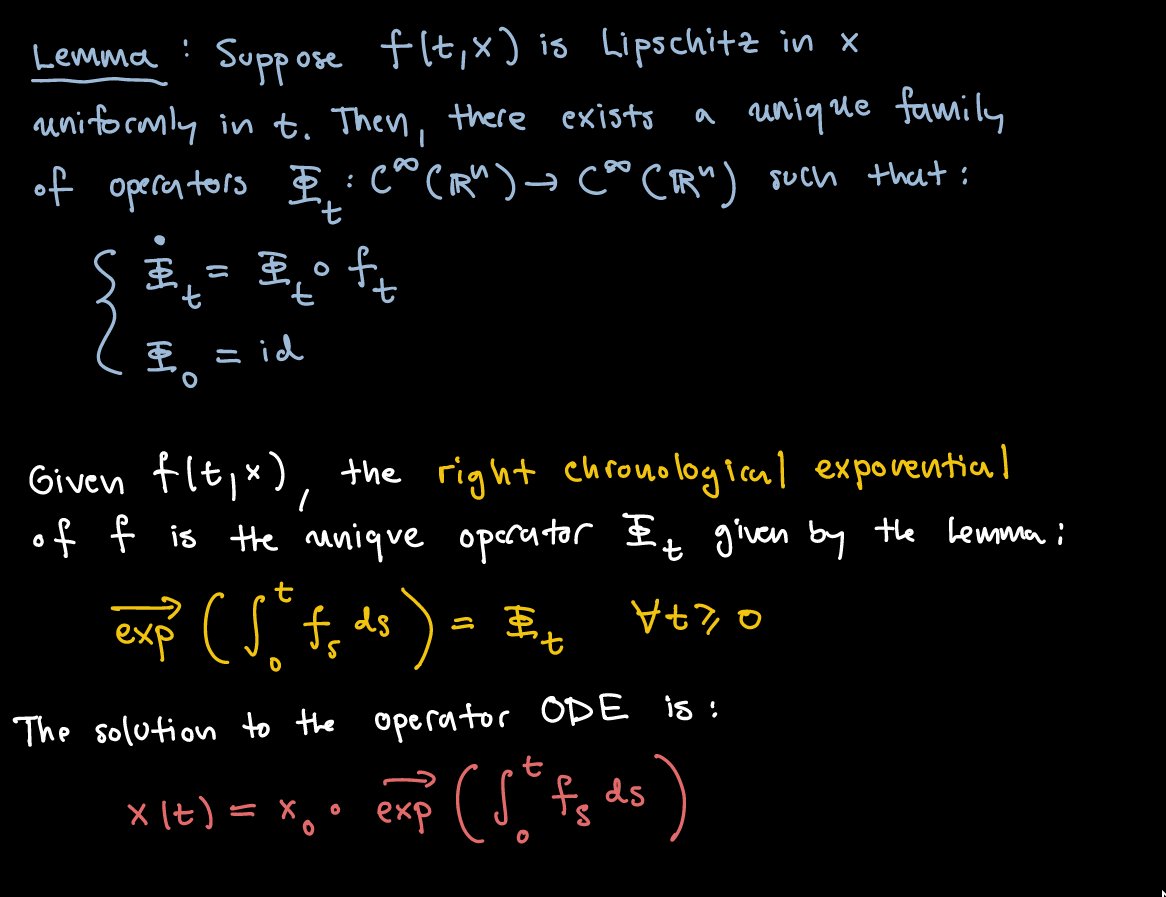 Lemma : Suppose f(t,x) is Lipschitz in x
uniformly in t. Then, there exists a unique family
of operators Φ_t : C^∞(ℝ^n) → C^∞(ℝ^n) such that:
{ Φ̇_t = Φ_t ∘ f_t
Φ_0 = id
Given f(t,x), the right chronological exponential
of f is the unique operator Φ_t given by the lemma:
→exp ( ∫_0^t f_s ds ) = Φ_t ∀t ⩾ 0
The solution to the operator ODE is:
x(t) = x_0 ∘ →exp ( ∫_0^t f_s ds )